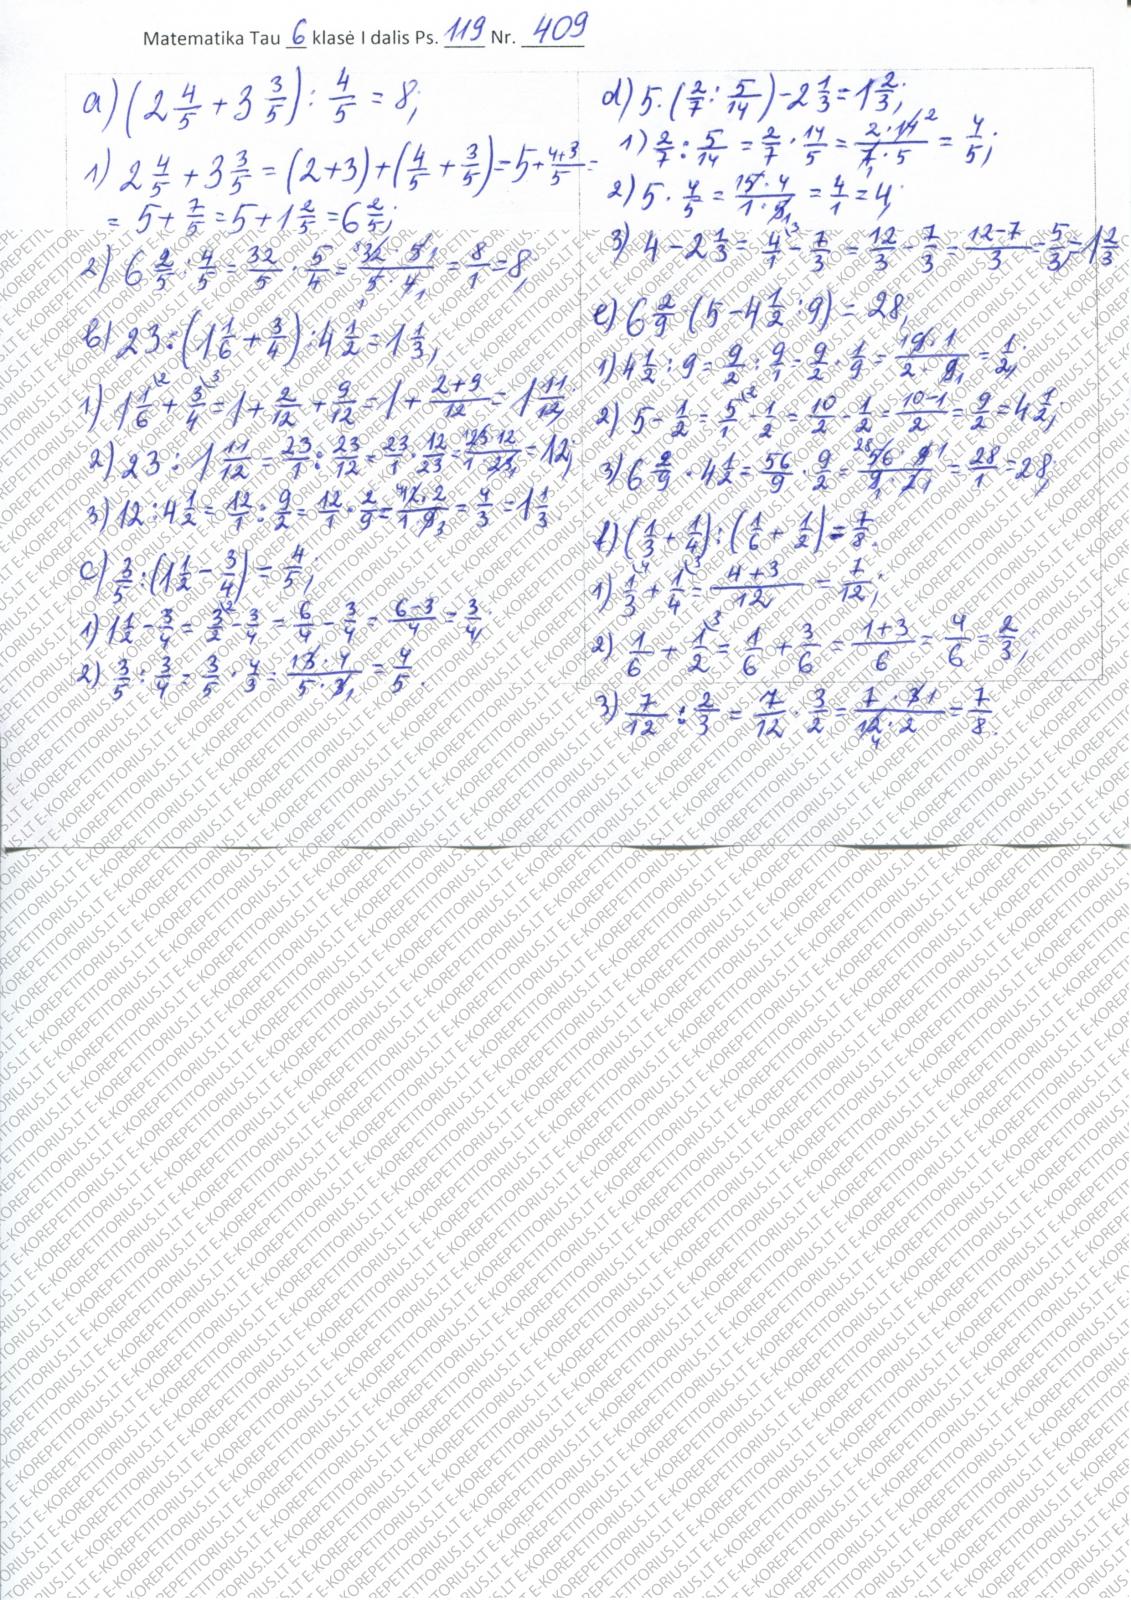 Matematika Tau 6 klasė I dalis Ps. 119 Nr. 409
a) (2 4/5 + 3 3/5) : 4/5 = 8;
1) 2 4/5 + 3 3/5 = (2+3) + (4/5 + 3/5) = 5 + (4+3)/5 =
= 5 + 7/5 = 5 + 1 2/5 = 6 2/5;
2) 6 2/5 : 4/5 = 32/5 · 5/4 = (32 · 5)/(5 · 4) = 8/1 = 8;
b) 23 : (1 1/6 + 3/4) : 4 1/2 = 1 1/3;
1) 1 1/6 + 3/4 = 1 + 2/12 + 9/12 = 1 + (2+9)/12 = 1 11/12;
2) 23 : 1 11/12 = 23/1 : 23/12 = 23/1 · 12/23 = (23 · 12)/(1 · 23) = 12;
3) 12 : 4 1/2 = 12/1 : 9/2 = 12/1 · 2/9 = (12 · 2)/(1 · 9) = 4/3 = 1 1/3
c) 3/5 : (1 1/2 - 3/4) = 4/5;
1) 1 1/2 - 3/4 = 3/2 - 3/4 = 6/4 - 3/4 = (6-3)/4 = 3/4;
2) 3/5 : 3/4 = 3/5 · 4/3 = (3 · 4)/(5 · 3) = 4/5.
d) 5 · (2/7 : 5/14) - 2 1/3 = 1 2/3;
1) 2/7 : 5/14 = 2/7 · 14/5 = (2 · 14)/(7 · 5) = 4/5;
2) 5 · 4/5 = (5 · 4)/(1 · 5) = 4/1 = 4;
3) 4 - 2 1/3 = 4/1 - 7/3 = 12/3 - 7/3 = (12-7)/3 = 5/3 = 1 2/3
e) 6 2/9 · (5 - 4 1/2 : 9) = 28;
1) 4 1/2 : 9 = 9/2 : 9/1 = 9/2 · 1/9 = (9 · 1)/(2 · 9) = 1/2;
2) 5 - 1/2 = 5/1 - 1/2 = 10/2 - 1/2 = (10-1)/2 = 9/2 = 4 1/2;
3) 6 2/9 · 4 1/2 = 56/9 · 9/2 = (56 · 9)/(9 · 2) = 28/1 = 28;
f) (1/3 + 1/4) : (1/6 + 1/2) = 7/8.
1) 1/3 + 1/4 = (4+3)/12 = 7/12;
2) 1/6 + 1/2 = 1/6 + 3/6 = (1+3)/6 = 4/6 = 2/3;
3) 7/12 : 2/3 = 7/12 · 3/2 = (7 · 3)/(12 · 2) = 7/8.
E-KOREPETITORIUS.LT